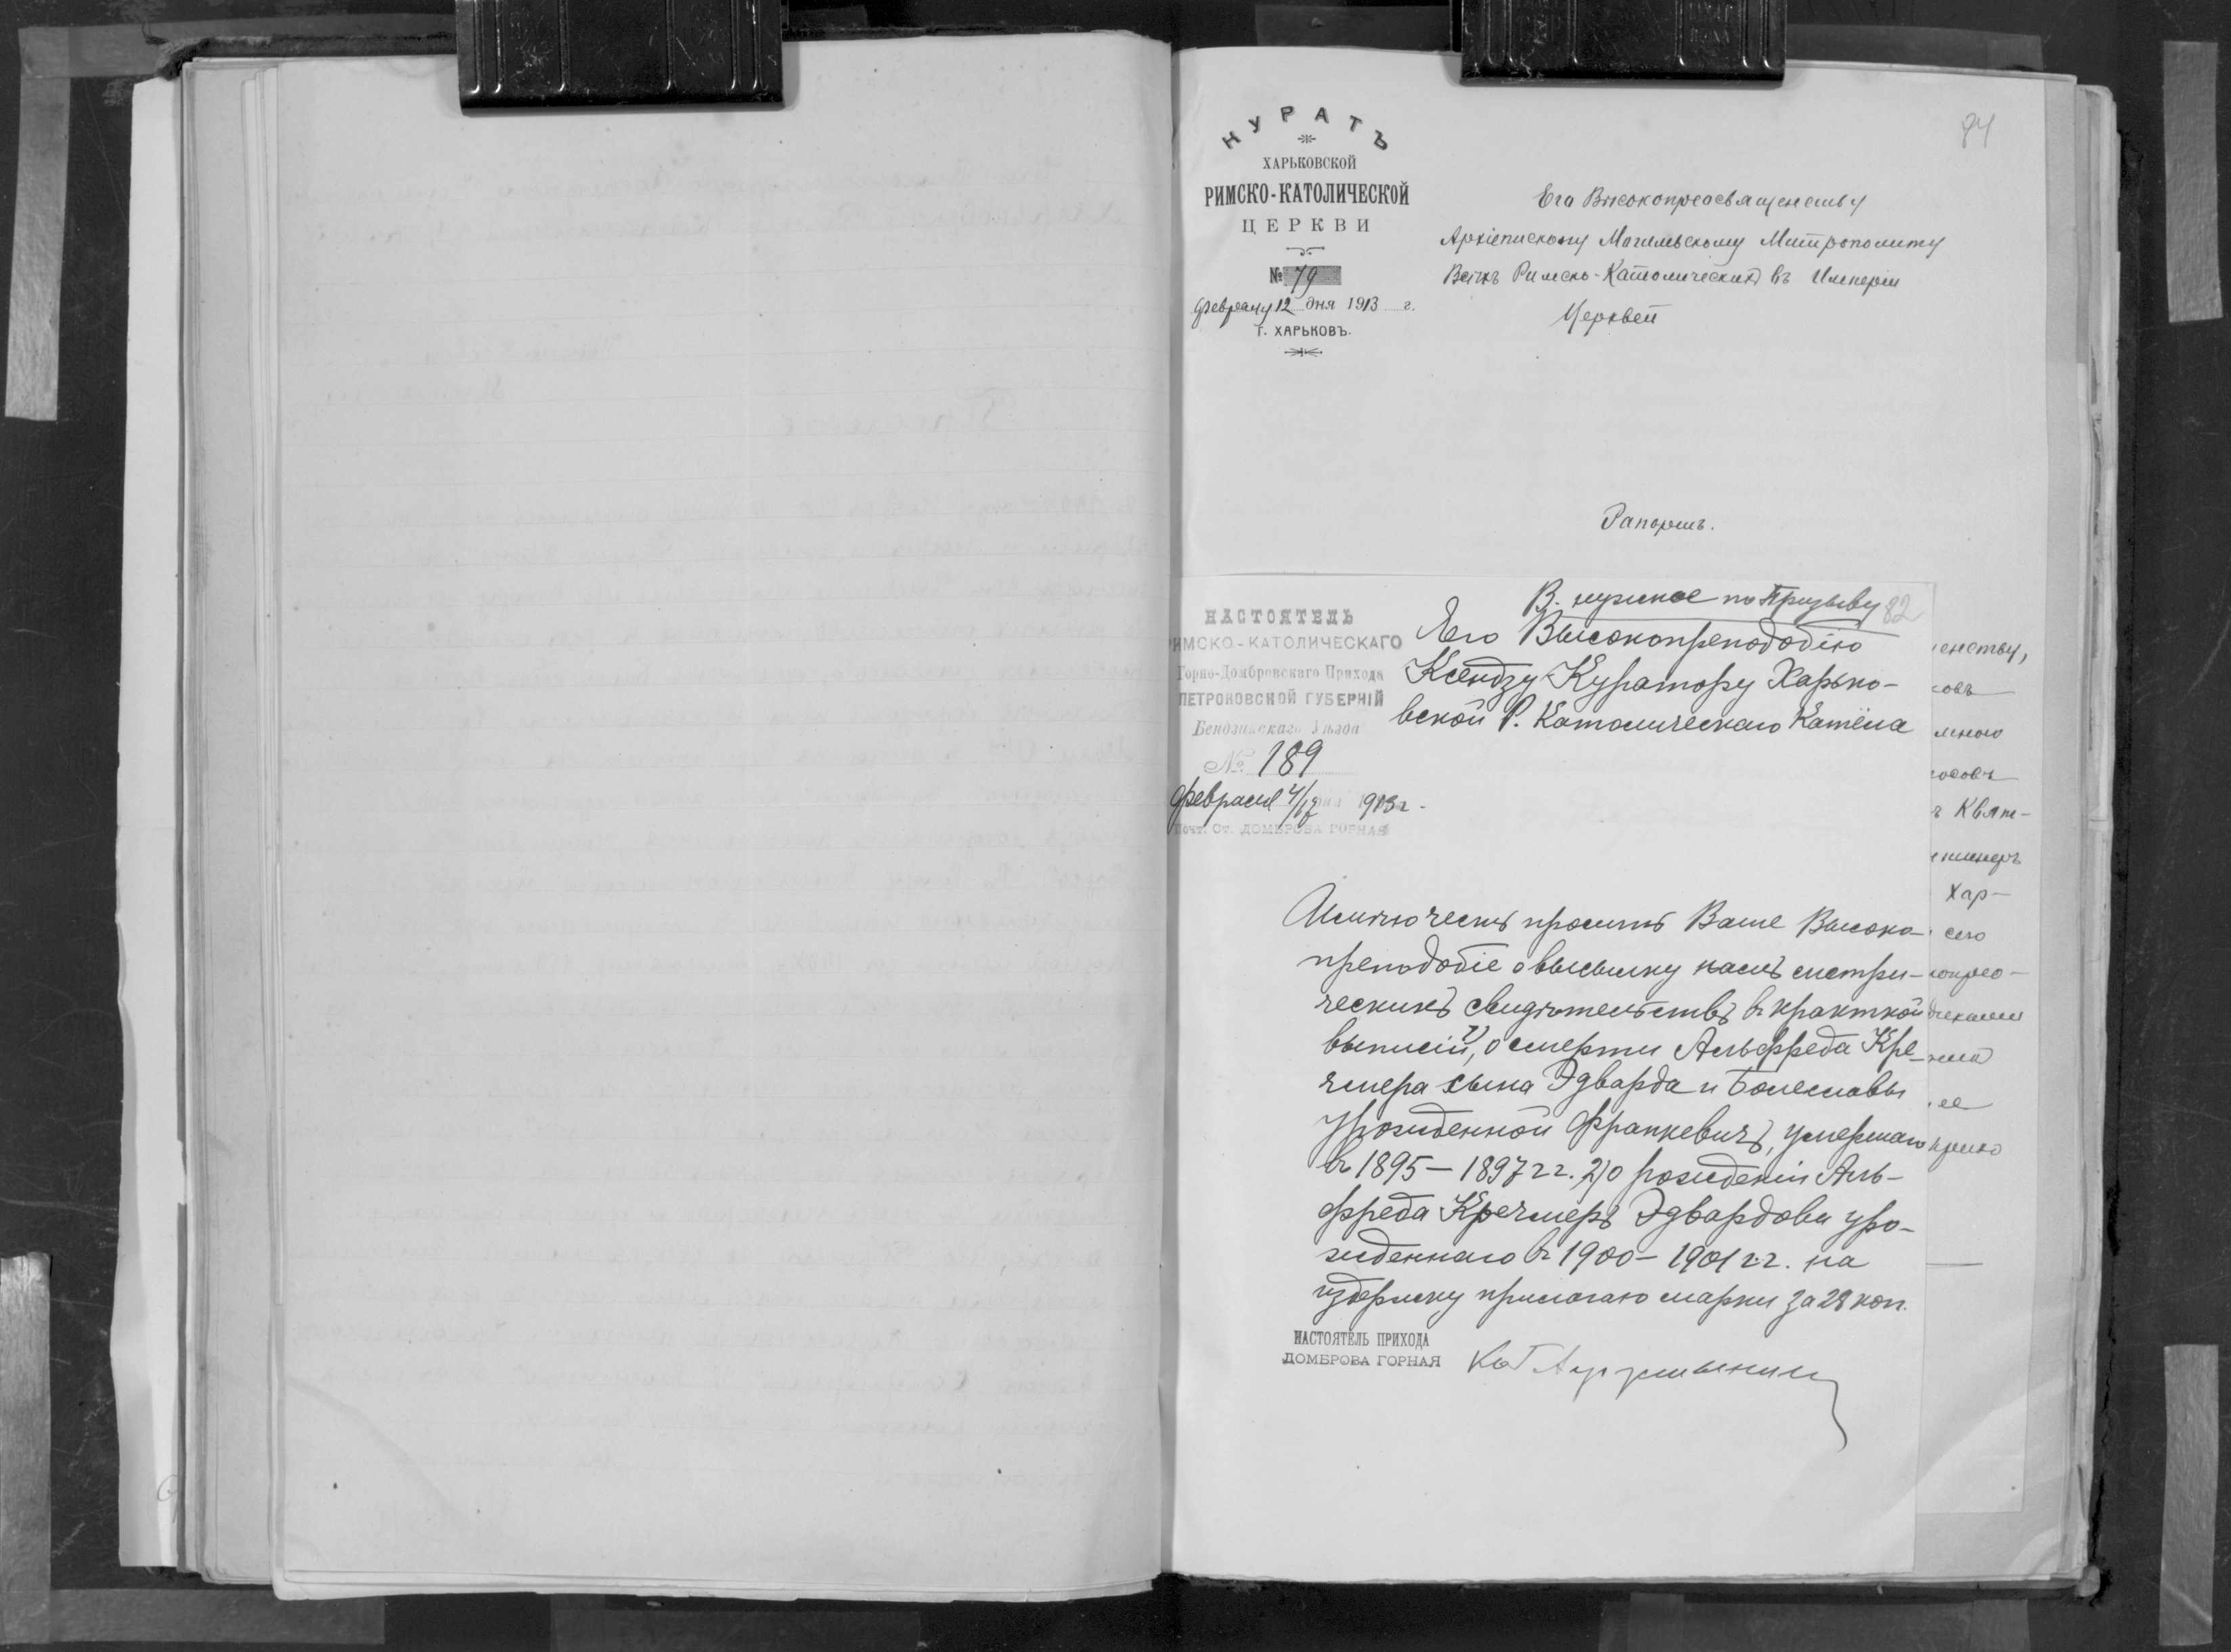 КУРАТЪ
ХАРЬКОВСКОЙ
РИМСКО-КАТОЛИЧЕСКОЙ
ЦЕРКВИ
№ 79
Февраля 12 дня 1913 г.
Г. ХАРЬКОВЪ.
84
Его Высокопреосвященству
Архіепископу Могилевскому Митрополиту
Всѣхъ Римско-Католическихъ въ Имперіи
Церквей
Рапортъ.
В. нужное по Призыву
82
НАСТОЯТЕЛЬ
РИМСКО-КАТОЛИЧЕСКАГО
Горно-Домбровскаго Прихода
ПЕТРОКОВСКОЙ ГУБЕРНІЙ
Бендинскаго Уѣзда
№ 189
Февраля 4/17 дня 1913 г.
Почт. Ст. ДОМБРОВА ГОРНАЯ
Его Высокопреподобію
Ксендзу Куратору Харько-
вской Р. Католическаго Катёла
Имѣю честь просить Ваше Высоко-
преподобіе о высылку намъ метри-
ческихъ свидѣтельствъ въ краткой
выписій, 1) о смерти Альфреда Кре-
чмера сына Эдварда и Болеславы
урожденной Франкевичъ, умершаго
въ 1895 – 1897 гг. 2) о рожденіи Аль-
фреда Кречмеръ Эдвардова уро-
жденнаго въ 1900 – 1901 г.г. на
издержку прилагаю марки за 28 коп.
НАСТОЯТЕЛЬ ПРИХОДА
ДОМБРОВА ГОРНАЯ
енству,
овъ
много
осовъ
ъ Квят-
женеръ
Хар-
сего
копрео-
ее